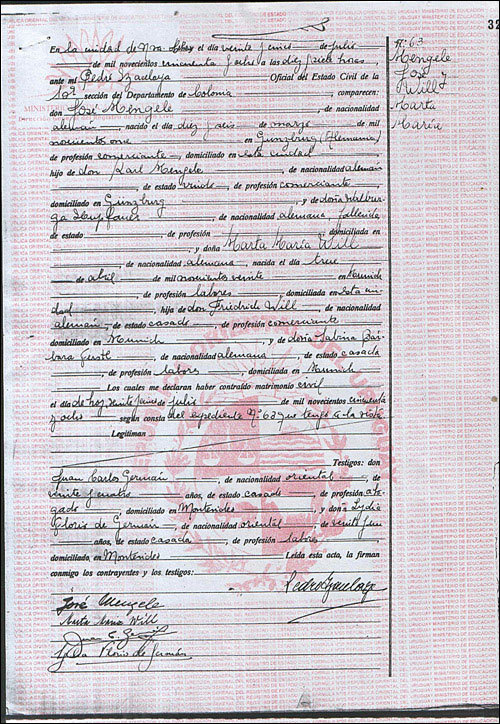 En la ciudad de Nva. Helvecia el día veinte y cinco de julio
de mil novecientos cincuenta y ocho a las diez y siete horas,
ante mí Pedro Oficial del Estado Civil de la
10ª sección del Departamento de Colonia, comparecen:
don José Mengele, de nacionalidad
alemán, nacido el día diez y seis de marzo de mil
novecientos once en Gunzburg (Alemania)
de profesión comerciante, domiciliado en esta ciudad,
hijo de don Karl Mengele, de nacionalidad alemán
, de estado viudo, de profesión comerciante,
domiciliado en Gunzburg, y de doña Walbur-
ga, de nacionalidad alemana, fallecida
de estado, de profesión, domiciliada en
, y doña Marta María Will
, de nacionalidad alemana, nacida el día trece
de abril de mil novecientos veinte en Munich
, de profesión labores, domiciliada en esta ciu-
dad, hija de don Friedrich Will, de nacionalidad
alemán, de estado casado, de profesión comerciante
domiciliado en Munich, y de doña Sabina Bár-
bara, de nacionalidad alemana, de estado casada
, de profesión labores, domiciliada en Munich.
Los cuales me declaran haber contraído matrimonio civil
el día de hoy, veinte y cinco de julio de mil novecientos cincuenta
y ocho según consta del expediente Nº 63 que tengo a la vista
Legitiman
Testigos: don
Juan Carlos Germán, de nacionalidad oriental, de
veinte y años, de estado casado, de profesión abo-
gado domiciliado en Montevideo, y doña Lydia
Floris de Germán, de nacionalidad oriental, de veinte y un
años, de estado casada, de profesión labores,
domiciliada, en Montevideo Leída esta acta, la firman
conmigo los contrayentes y los testigos:
José Mengele
Marta María Will
Lydia Floris de Germán
Nº 63
Mengele
José y
Will
Marta
María
32